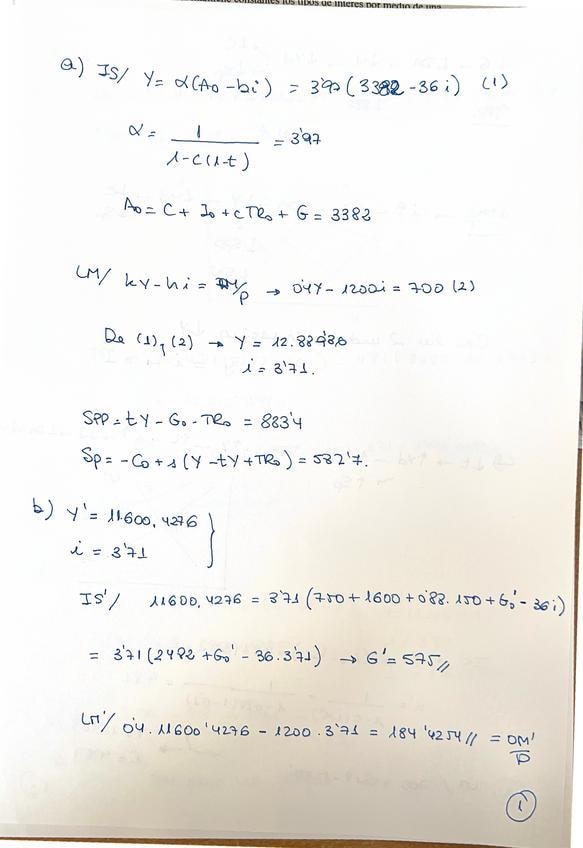 constantes los tipos de interés por medio de una
a) IS/ Y = α(A₀ - bi) = 3'97 (3382 - 36 i) (1)
α = 1 / 1 - c(1-t) = 3'97
A₀ = C + I₀ + cTR₀ + G = 3382
LM/ kY - hi = M/P → 0'4Y - 1200i = 700 (2)
De (1) y (2) → Y = 12.889'3,0
i = 3'71.
SPP = tY - G₀ - TR₀ = 883'4
Sp = -C₀ + s (Y - tY + TR₀) = 532'7.
b) Y' = 11.600,4276
i = 3'71
IS'/ 11600,4276 = 3'71 (750 + 1600 + 0'88. 150 + G₀' - 36i)
= 3'71 (2482 + G₀' - 36.3'71) → G' = 575//
LM'/ 0'4. 11600'4276 - 1200. 3'71 = 184'4254// = OM'/P
1